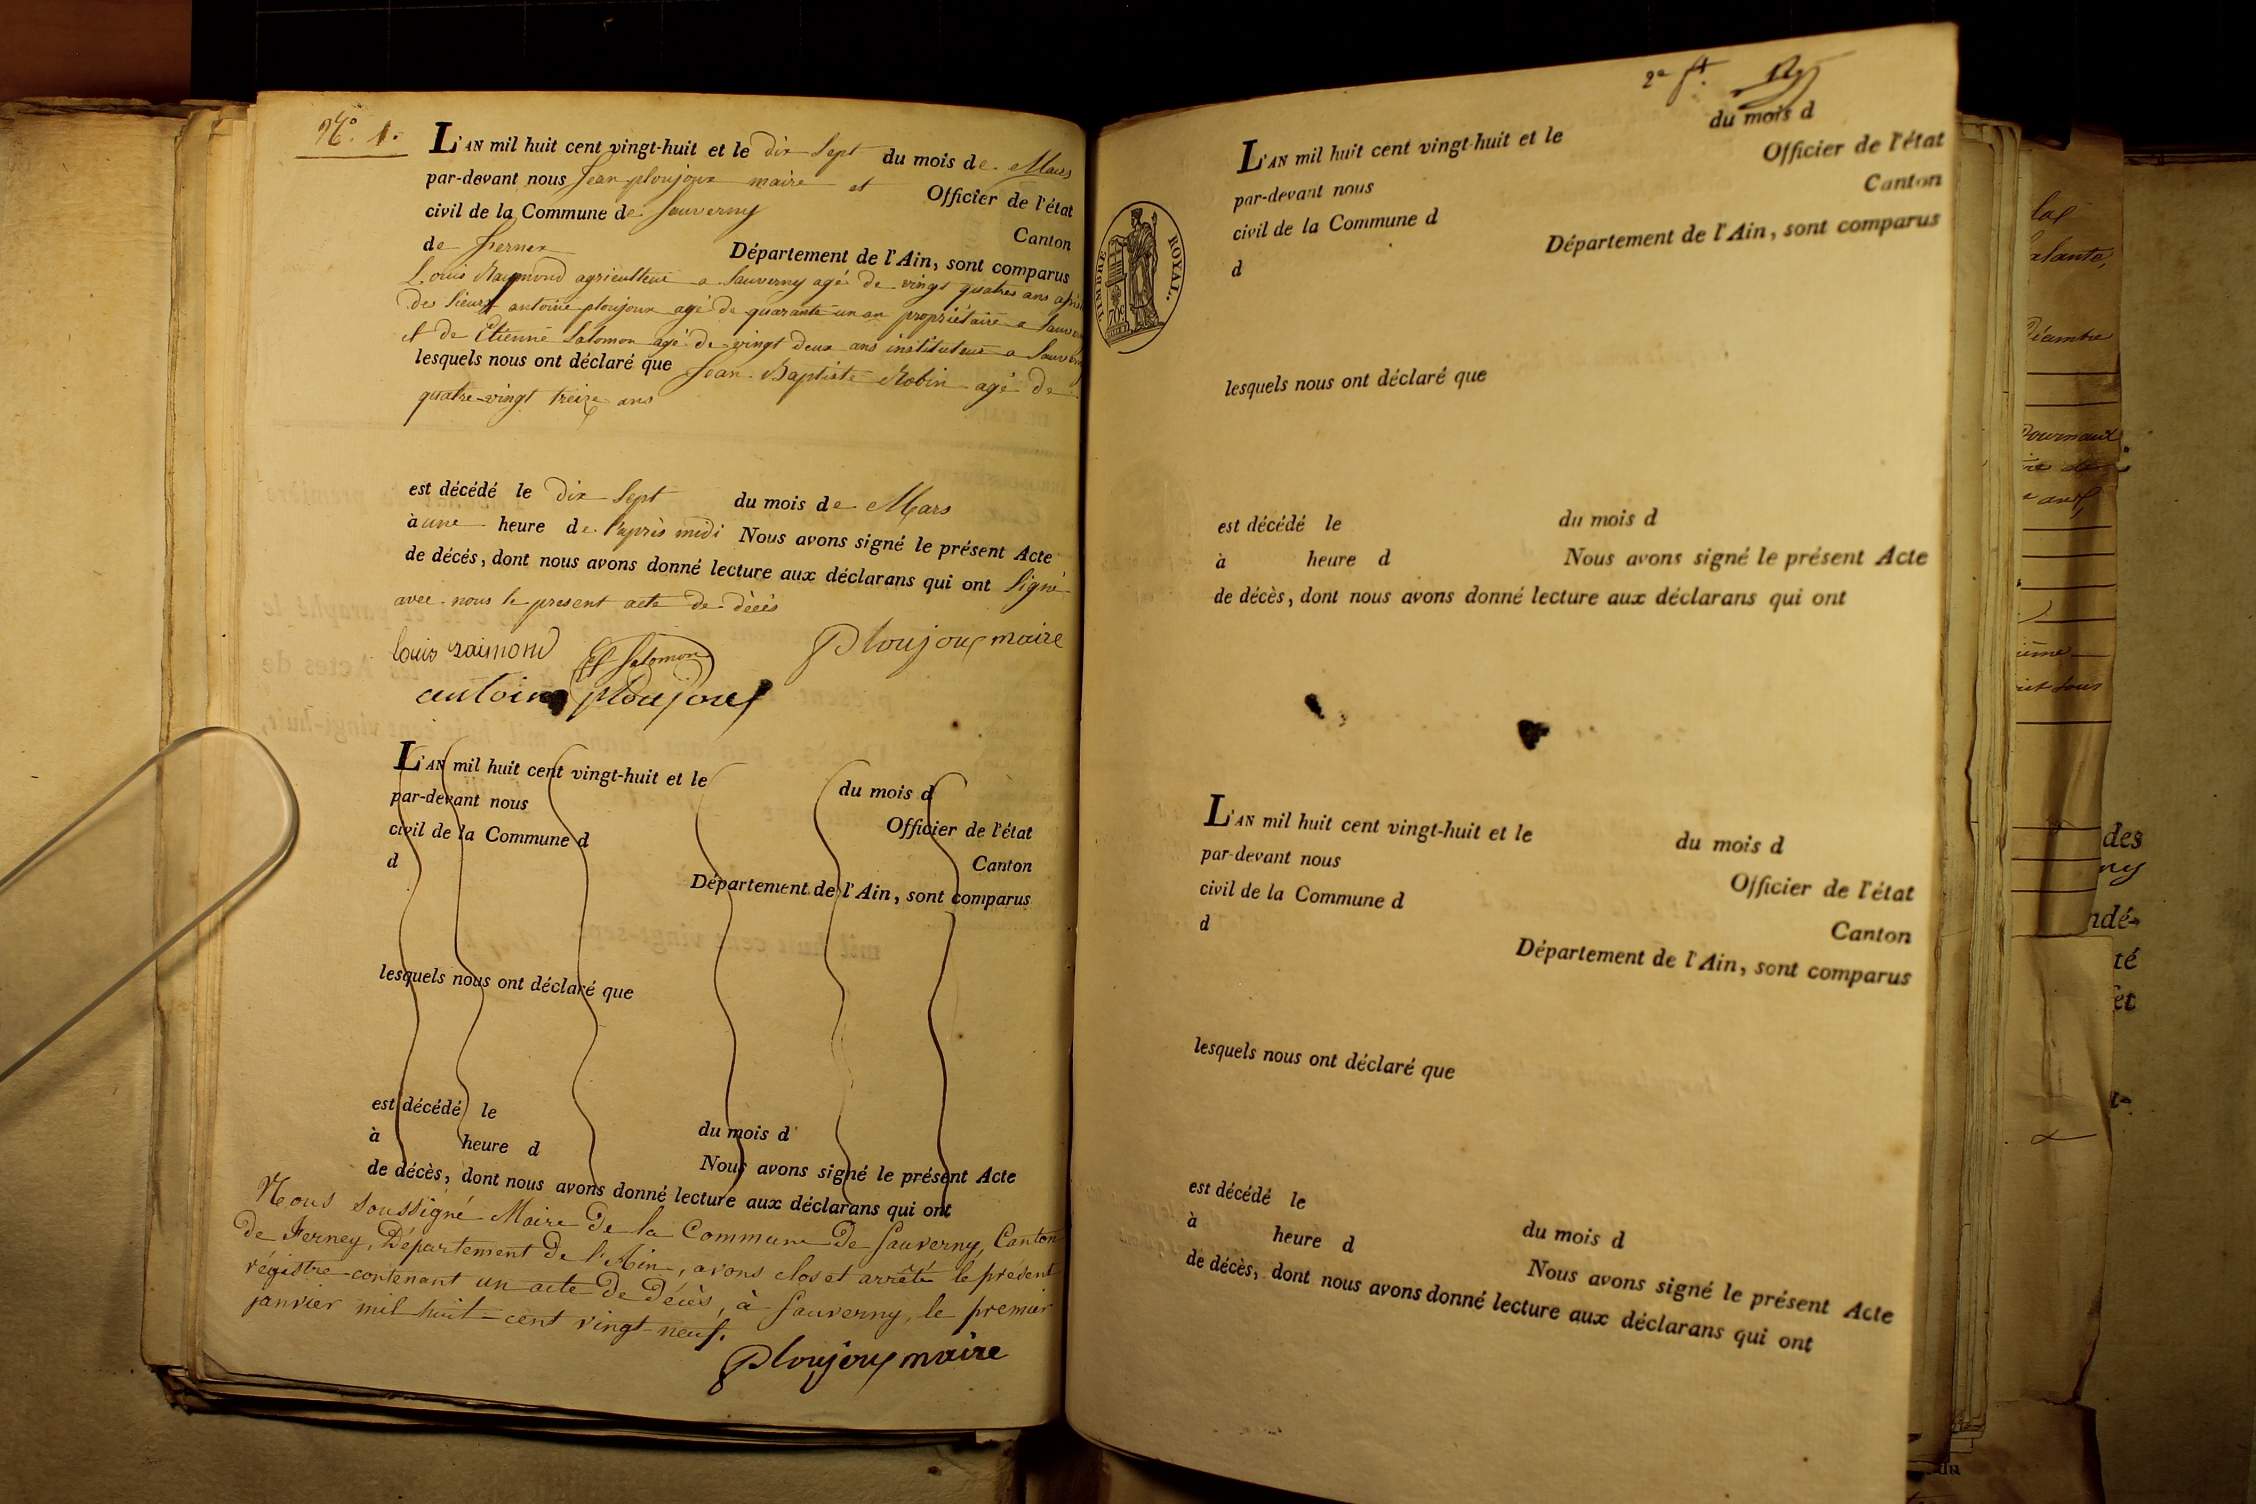 N.º 1.
L'AN mil huit cent vingt-huit et le dix Sept du mois de Mars
par-devant nous Jean ploujoux maire et Officier de l'état
civil de la Commune de Sauverny Canton
de ferney Département de l'Ain, sont comparus
Louis Raymond agriculteur a Sauverny agé de vingt quatres ans
des Sieurs antoine ploujoux agé de quarante un an propriétaire a
et de Etienne Salomon agé de vingt deux ans instituteur a
lesquels nous ont déclaré que Jean Baptiste Robin agé de
quatre-vingt treize ans
est décédé le dix Sept du mois de Mars
à une heure de l'après midi Nous avons signé le présent Acte
de décés, dont nous avons donné lecture aux déclarans qui ont Signé
avec nous le present acte de décés
louis raimond Et Salomon Ploujoux maire
antoine ploujoux
L'AN mil huit cent vingt-huit et le du mois d
par-devant nous Officier de l'état
civil de la Commune d Canton
d Département de l'Ain, sont comparus
lesquels nous ont déclaré que
est décédé le du mois d
à heure d Nous avons signé le présent Acte
de décès, dont nous avons donné lecture aux déclarans qui ont
Nous soussigné Maire de la Commune de Sauverny, Canton
de Ferney, Département de l'Ain, avons clos et arrêté le présent
régistre contenant un acte de Décès, à Sauverny, le premier
janvier mil huit-cent vingt-neuf.
Ploujoux maire
2e ft.
L'AN mil huit cent vingt-huit et le du mois d
par-devant nous Officier de l'état
civil de la Commune d Canton
d Département de l'Ain, sont comparus
TIMBRE ROYAL.
lesquels nous ont déclaré que
est décédé le du mois d
à heure d Nous avons signé le présent Acte
de décès, dont nous avons donné lecture aux déclarans qui ont
L'AN mil huit cent vingt-huit et le du mois d
par-devant nous Officier de l'état
civil de la Commune d Canton
d Département de l'Ain, sont comparus
lesquels nous ont déclaré que
est décédé le du mois d
à heure d Nous avons signé le présent Acte
de décès, dont nous avons donné lecture aux déclarans qui ont
des